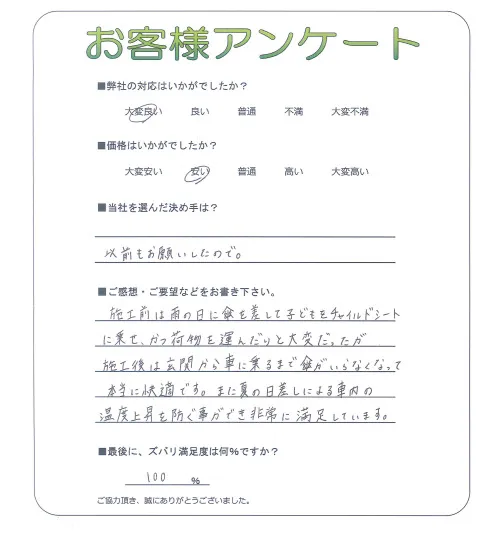 お客様アンケート
■弊社の対応はいかがでしたか？
大変良い 良い 普通 不満 大変不満
■価格はいかがでしたか？
大変安い 安い 普通 高い 大変高い
■当社を選んだ決め手は？
以前もお願いしたので。
■ご感想・ご要望などをお書き下さい。
施工前は雨の日に傘を差して子どもをチャイルドシート
に乗せ、かつ荷物を運んだりと大変だったが
施工後は玄関から車に乗るまで傘がいらなくなって
本当に快適です。また夏の日差しによる車内の
温度上昇を防ぐ事ができ非常に満足しています。
■最後に、ズバリ満足度は何%ですか？
100 %
ご協力頂き、誠にありがとうございました。